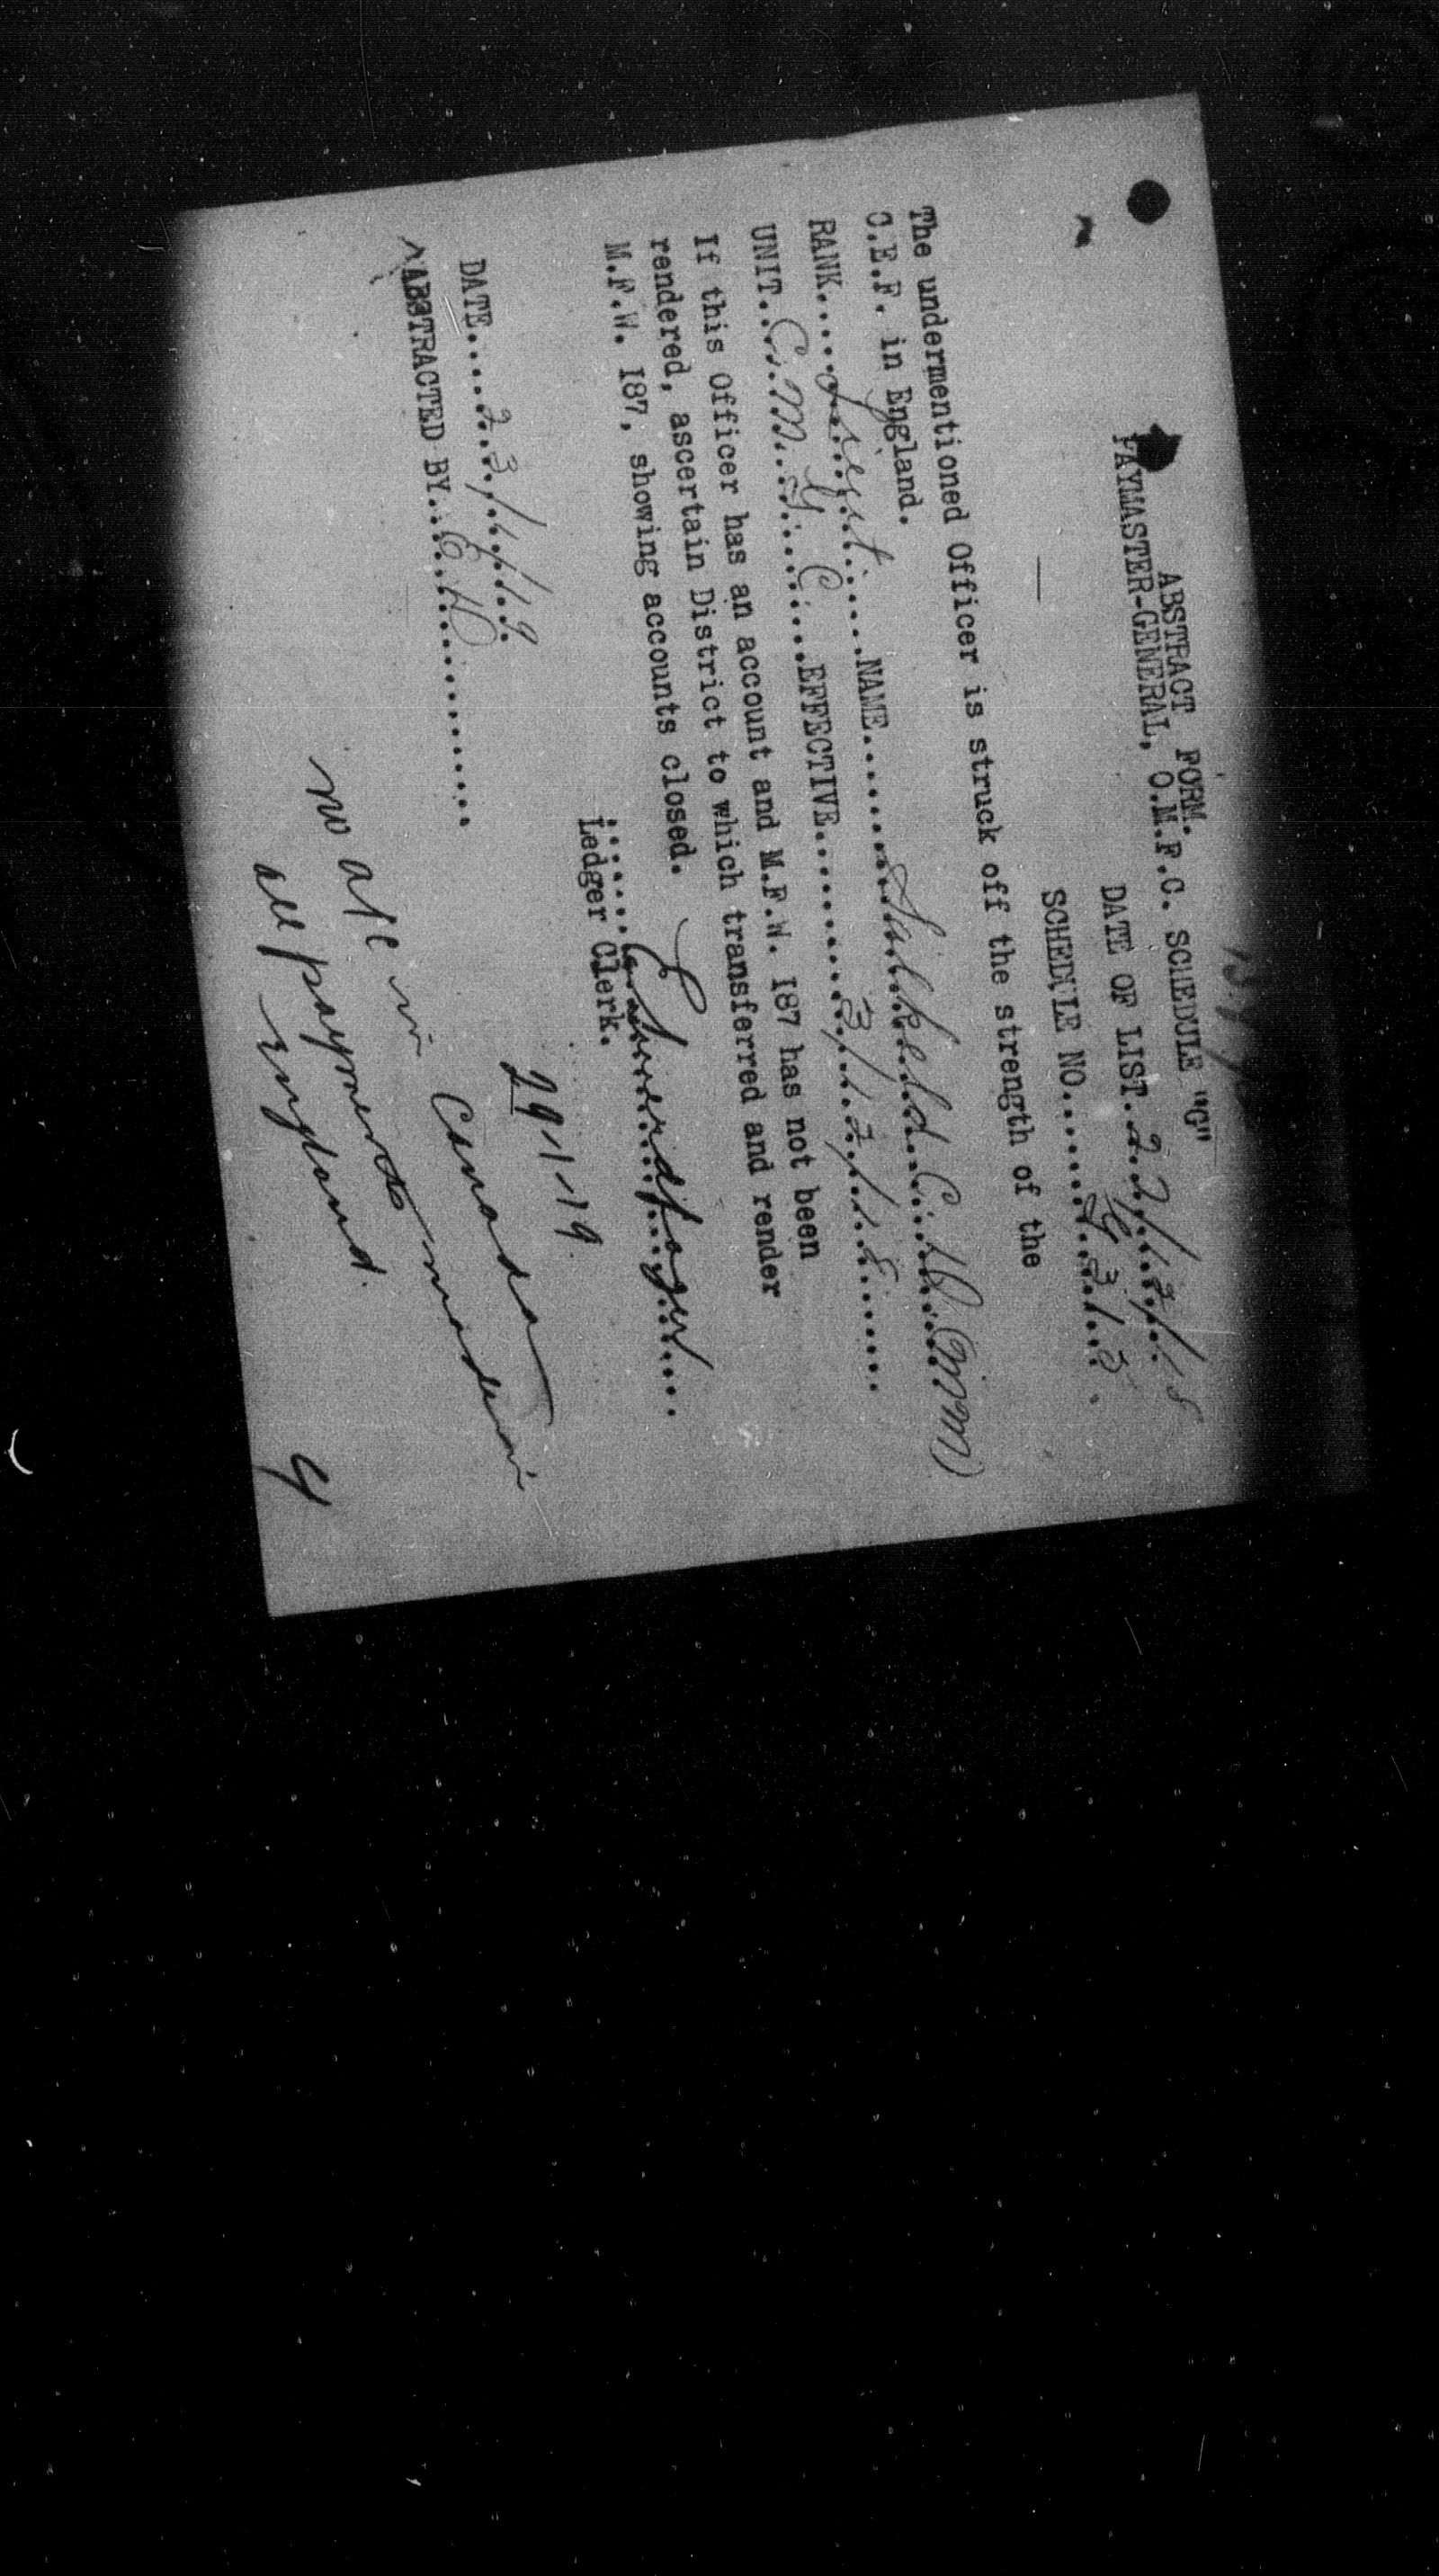 ABSTRACT FORM.
PAYMASTER-GENERAL, O.M.F.C. SCHEDULE "G"
DATE OF LIST.22/12/18
SCHEDULE NO......G.313.
The undermentioned Officer is struck off the strength of the
C.E.F. in England.
RANK.....Lieut......NAME.........Salkeld C. D. (M M)
UNIT..C. M. G. C.....EFFECTIVE..........3/12/18.......
If this Officer has an account and M.F.W. 187 has not been
rendered, ascertain District to which transferred and render
M.F.W. 187, showing accounts closed.
Ledger Clerk.
29/1/19.
DATE.....23/1/19.
ABSTRACTED BY
no a/c in Canada
all payments made in
England.